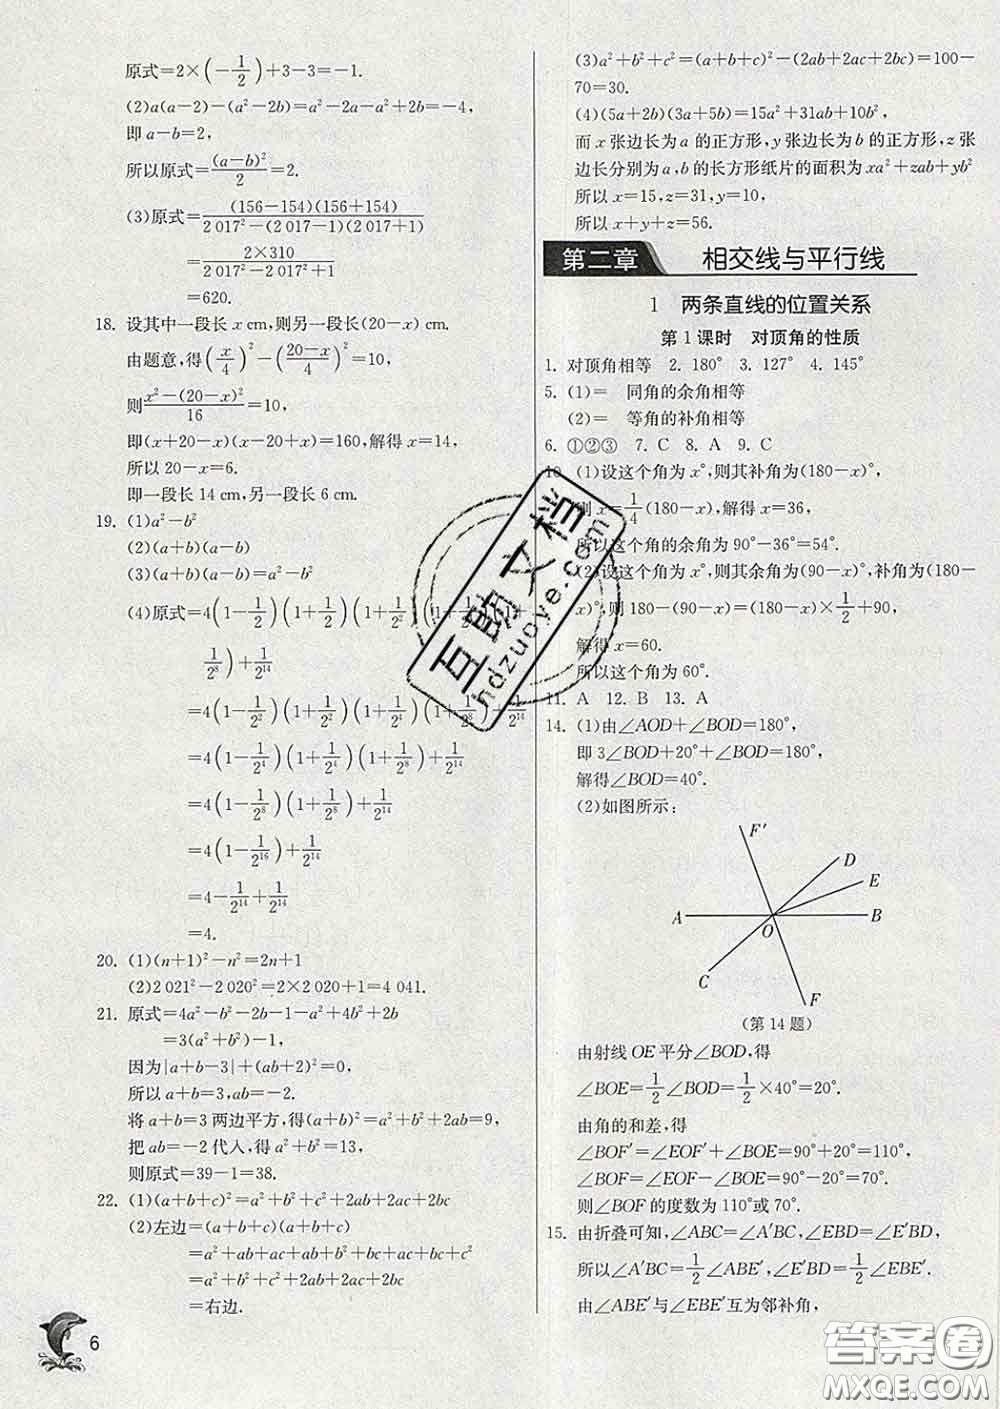 原式=2×(-1/2)+3-3=-1.
(2)a(a-2)-(a²-2b)=a²-2a-a²+2b=-4,
即 a-b=2,
所以原式=(a-b)²/2=2.
(3)原式=(156-154)(156+154)/(2 017²-(2 017-1)(2 017+1))
=2×310/(2 017²-2 017²+1)
=620.
18. 设其中一段长 x cm,则另一段长(20-x) cm.
由题意,得(x/4)²-((20-x)/4)²=10,
则(x²-(20-x)²)/16=10,
即(x+20-x)(x-20+x)=160,解得 x=14,
所以 20-x=6.
即一段长 14 cm,另一段长 6 cm.
19. (1)a²-b²
(2)(a+b)(a-b)
(3)(a+b)(a-b)=a²-b²
(4)原式=4(1-1/2)(1+1/2)(1+1/2²)(1+1/2⁴)(1+
1/2⁸)+1/2¹⁴
=4(1-1/2²)(1+1/2²)(1+1/2⁴)(1+1/2⁸)+1/2¹⁴
=4(1-1/2⁴)(1+1/2⁴)(1+1/2⁸)+1/2¹⁴
=4(1-1/2⁸)(1+1/2⁸)+1/2¹⁴
=4(1-1/2¹⁶)+1/2¹⁴
=4-1/2¹⁴+1/2¹⁴
=4.
20. (1)(n+1)²-n²=2n+1
(2)2 021²-2 020²=2×2 020+1=4 041.
21. 原式=4a²-b²-2b-1-a²+4b²+2b
=3(a²+b²)-1,
因为|a+b-3|+(ab+2)²=0,
所以 a+b=3,ab=-2.
将 a+b=3 两边平方,得(a+b)²=a²+b²+2ab=9,
把 ab=-2代入,得 a²+b²=13,
则原式=39-1=38.
22. (1)(a+b+c)²=a²+b²+c²+2ab+2ac+2bc
(2)左边=(a+b+c)(a+b+c)
=a²+ab+ac+ab+b²+bc+ac+bc+c²
=a²+b²+c²+2ab+2ac+2bc
=右边.
6
(3)a²+b²+c²=(a+b+c)²-(2ab+2ac+2bc)=100-
70=30.
(4)(5a+2b)(3a+5b)=15a²+31ab+10b²,
而 x 张边长为 a 的正方形,y 张边长为 b 的正方形,z 张
边长分别为 a,b 的长方形纸片的面积为 xa²+zab+yb²
所以 x=15,z=31,y=10,
所以 x+y+z=56.
第二章 相交线与平行线
1 两条直线的位置关系
第 1 课时 对顶角的性质
1. 对顶角相等 2. 180° 3. 127° 4. 145°
5. (1)= 同角的余角相等
(2)= 等角的补角相等
6. ①②③ 7. C 8. A 9. C
10. (1)设这个角为 x°,则其补角为(180-x)°,
则 x=1/4(180-x),解得 x=36,
所以这个角的余角为 90°-36°=54°.
(2)设这个角为 x°,则其余角为(90-x)°,补角为(180-
x)°,则 180-(90-x)=(180-x)×1/2+90,
解得 x=60.
所以这个角为 60°.
11. A 12. B 13. A
14. (1)由∠AOD+∠BOD=180°,
即 3∠BOD+20°+∠BOD=180°,
解得∠BOD=40°.
(2)如图所示:
F′
D
E
A
O
B
C
F
(第 14 题)
由射线 OE 平分∠BOD,得
∠BOE=1/2∠BOD=1/2×40°=20°.
由角的和差,得
∠BOF′=∠EOF′+∠BOE=90°+20°=110°,
∠BOF=∠EOF-∠BOE=90°-20°=70°.
则∠BOF 的度数为 110°或 70°.
15. 由折叠可知,∠ABC=∠A′BC,∠EBD=∠E′BD,
所以∠A′BC=1/2∠ABE′,∠E′BD=1/2∠EBE′.
由∠ABE′与∠EBE′互为邻补角,
互助文档
hdzuoye.com
答案圈
MXQE.COM